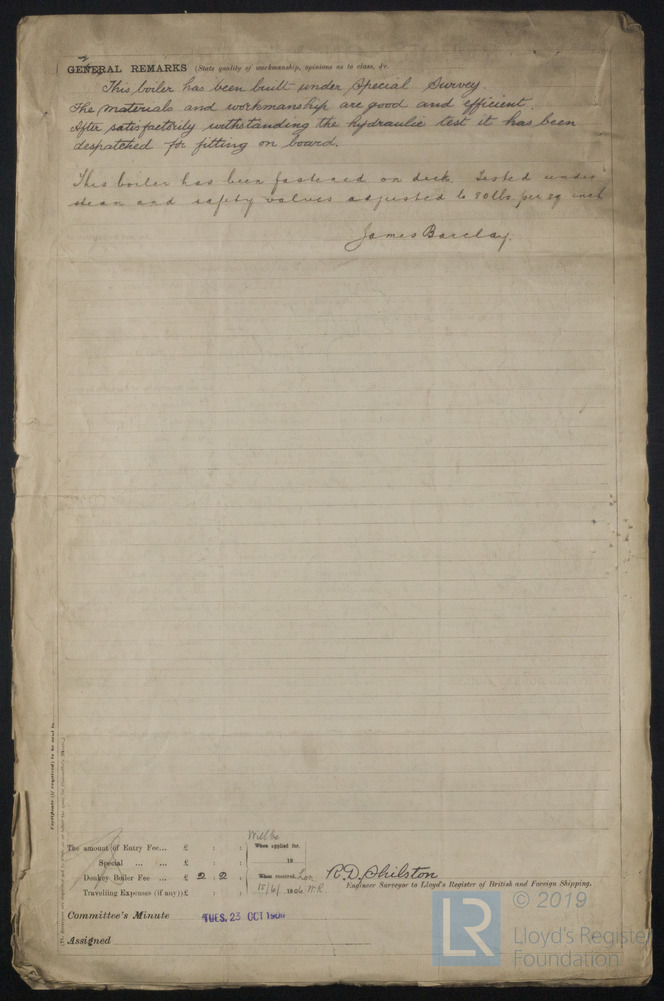 GENERAL REMARKS (State quality of workmanship, opinions as to class, &c.
This boiler has been built under Special Survey.
The materials and workmanship are good and efficient.
After satisfactorily withstanding the hydraulic test it has been
despatched for fitting on board.
This boiler has been fastened on deck. Tested under
steam and safety valves adjusted to 80 lbs per sq inch
James Barclay.
Certificate (if required) to be sent to
The amount of Entry Fee... £ : :
Special ... ... £ : :
Donkey Boiler Fee ... £ 2 : 2 :
Travelling Expenses (if any) £ : :
When applied for,
18
When received,
15/6/ 1906
R.D. Shilston
Engineer Surveyor to Lloyd's Register of British and Foreign Shipping.
Committee's Minute TUES. 23 OCT 1906
Assigned
LR
© 2019
Lloyd's Register
Foundation